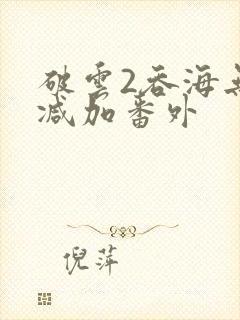 破雲2吞海无
减加番外
倪萍